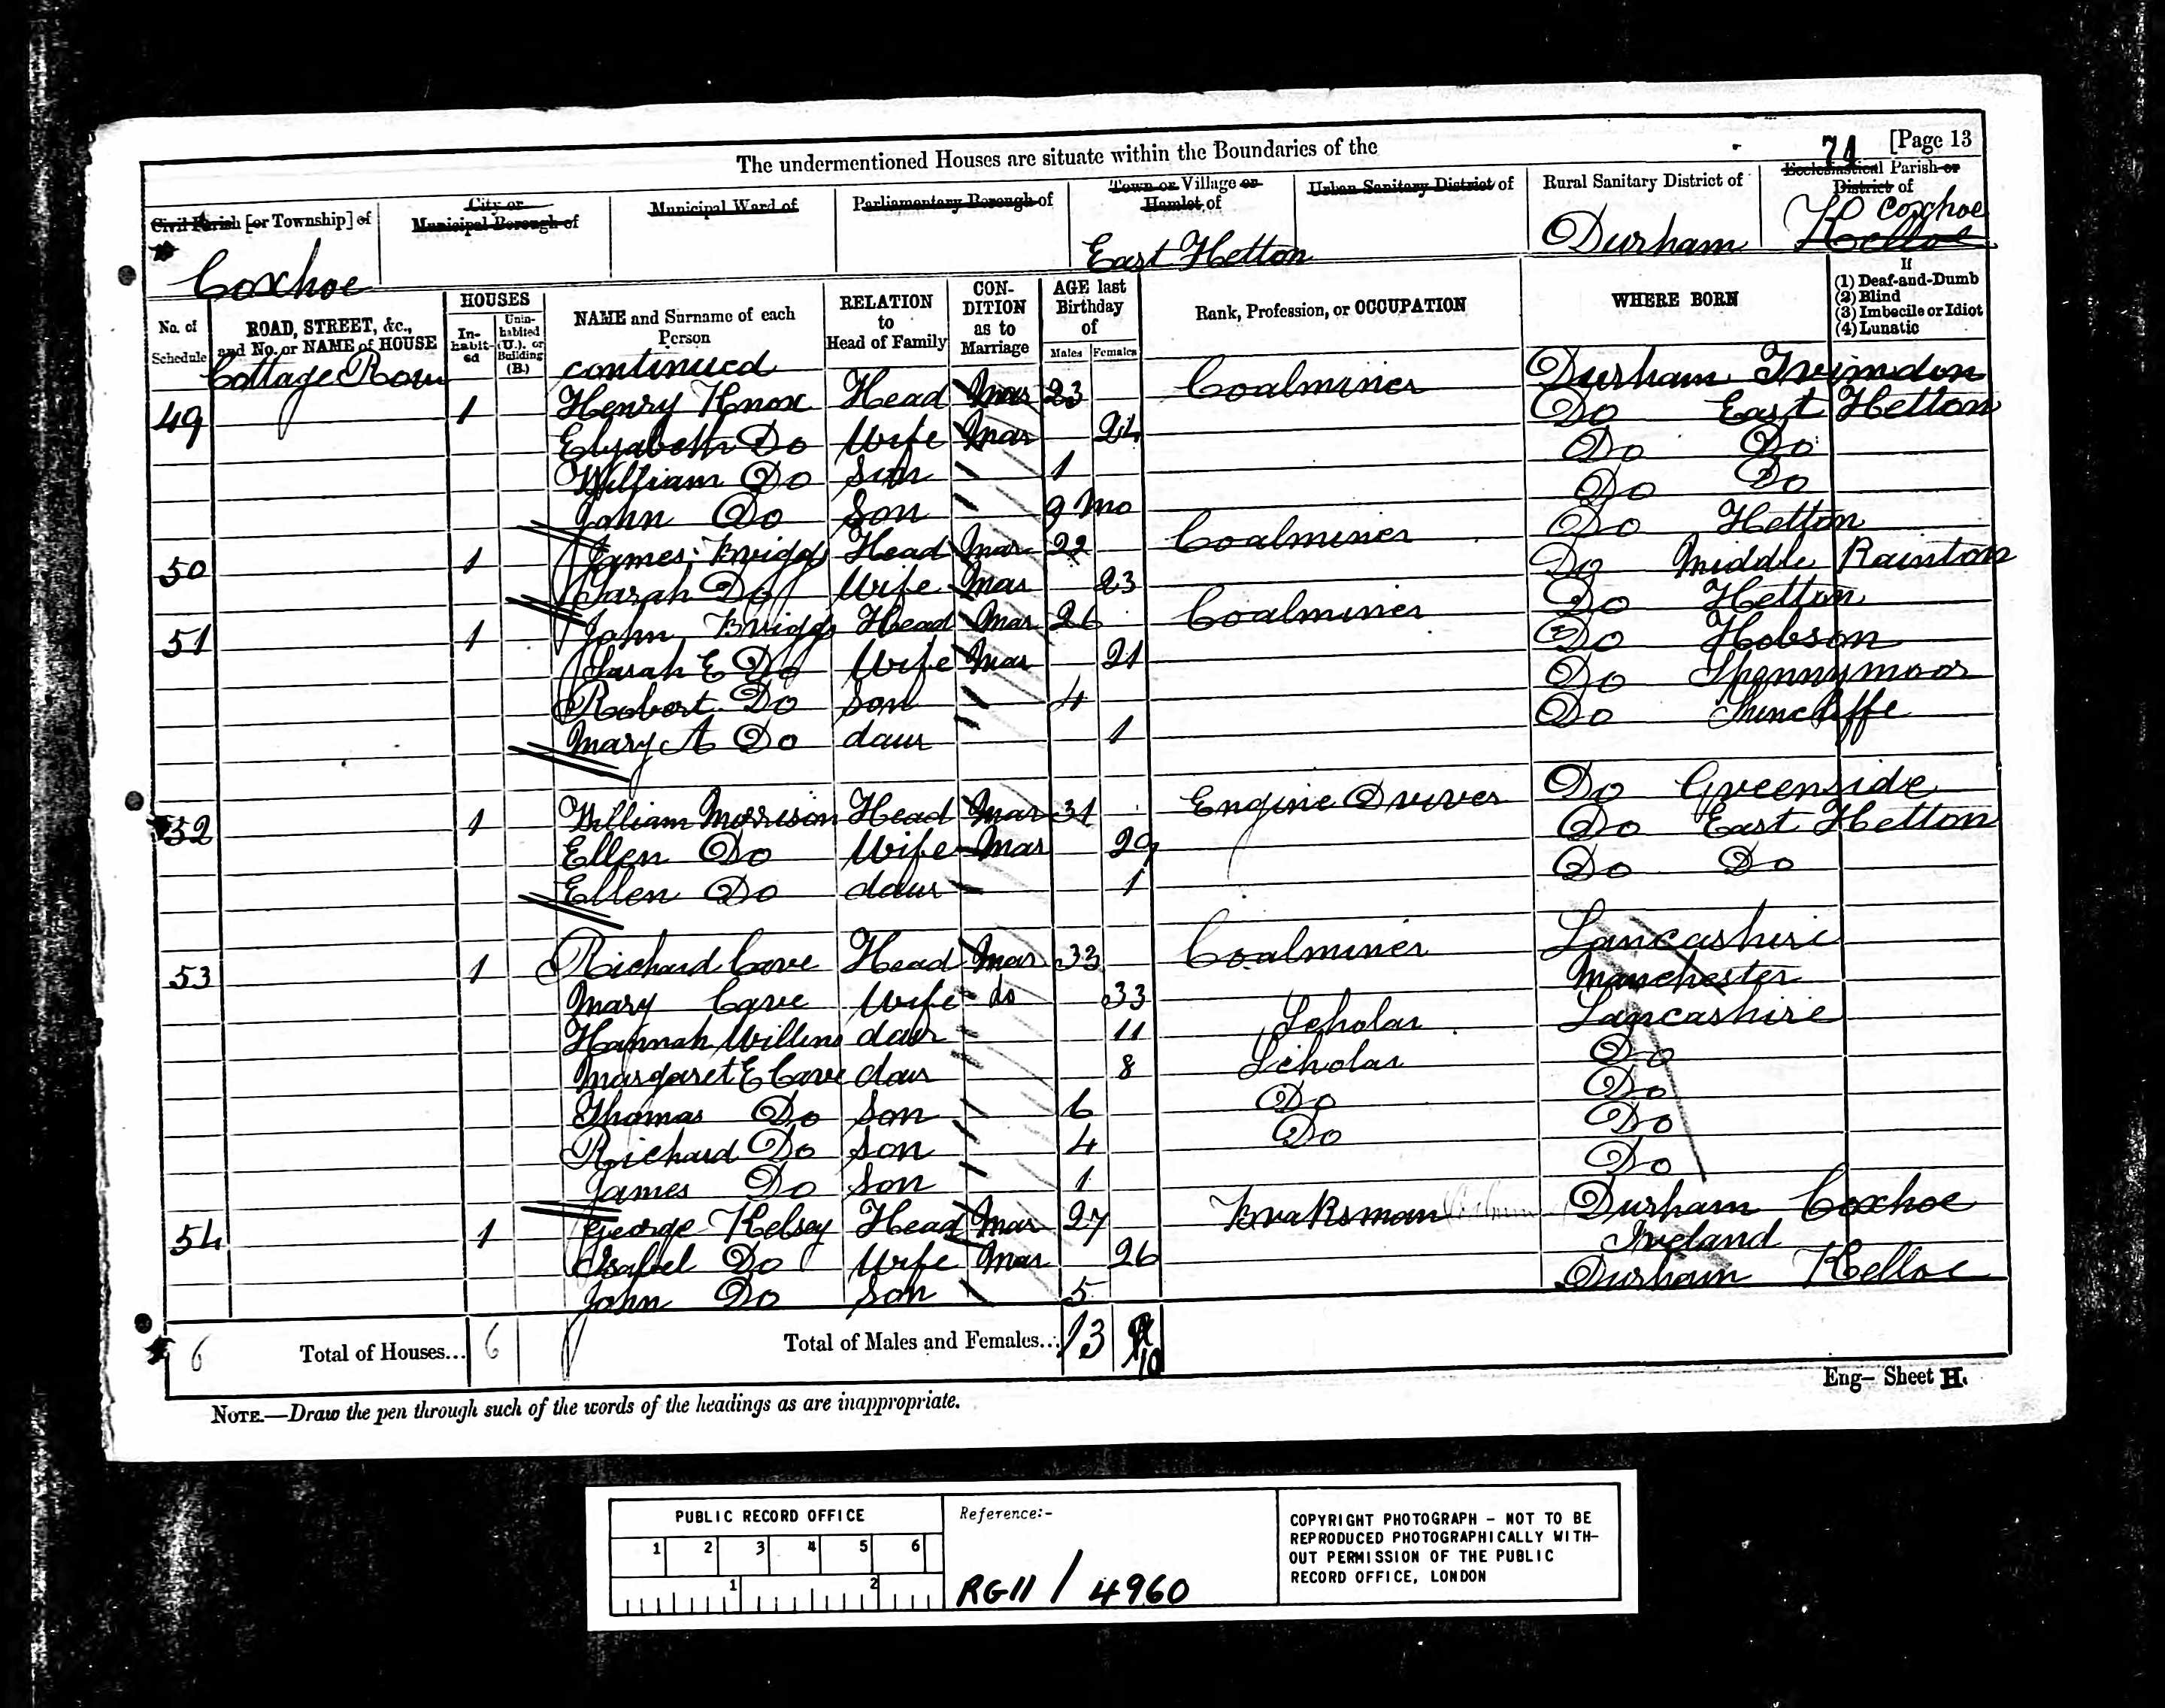 The undermentioned Houses are situate within the Boundaries of the
74 [Page 13
Civil Parish [or Township] of
City or Municipal Borough of
Municipal Ward of
Parliamentary Borough of
Town or Village or Hamlet of
Urban Sanitary District of
Rural Sanitary District of
Ecclesiastical Parish or District of
Coxhoe
East Hetton
Durham
Coxhoe
Kelloe
No. of Schedule
ROAD, STREET, &c., and No. or NAME of HOUSE
HOUSES
In-habit-ed
Unin-habited (U.), or Building (B.)
NAME and Surname of each Person
RELATION to Head of Family
CON-DITION as to Marriage
AGE last Birthday of
Males Females
Rank, Profession, or OCCUPATION
WHERE BORN
If
(1) Deaf-and-Dumb
(2) Blind
(3) Imbecile or Idiot
(4) Lunatic
Cottage Row continued
49 1 Henry Knox Head Mar 23 Coalminer Durham Trimdon
Elizabeth Do Wife Mar 24 Do East Hetton
William Do Son 1 Do Do
John Do Son 9 Mo Do Do
50 1 James Briggs Head Mar 22 Coalminer Do Hetton
Sarah Do Wife Mar 23 Do Middle Rainton
51 1 John Briggs Head Mar 26 Coalminer Do Hetton
Sarah E Do Wife Mar 21 Do Hobson
Robert Do Son 4 Do Spennymoor
Mary A Do daur 1 Do Shincliffe
52 1 William Morrison Head Mar 31 Engine Driver Do Greenside
Ellen Do Wife Mar 29 Do East Hetton
Ellen Do daur 1 Do Do
53 1 Richard Cave Head Mar 33 Coalminer Lancashire
Manchester
Mary Cave Wife do 33 Lancashire
Hannah daur 11 Scholar Do
Margaret E Cave daur 8 Scholar Do
Thomas Do Son 6 Do Do
Richard Do Son 4 Do Do
James Do Son 1
54 1 George Kelsey Head Mar 27 Braksman Durham Coxhoe
Isabel Do Wife Mar 26 Ireland
John Do Son 5 Durham Kelloe
6 Total of Houses... 6 Total of Males and Females... 13 10
Eng– Sheet H.
NOTE.—Draw the pen through such of the words of the headings as are inappropriate.
PUBLIC RECORD OFFICE
1 2 3 4 5 6
1 2
Reference:-
RG11 / 4960
COPYRIGHT PHOTOGRAPH – NOT TO BE
REPRODUCED PHOTOGRAPHICALLY WITH-
OUT PERMISSION OF THE PUBLIC
RECORD OFFICE, LONDON